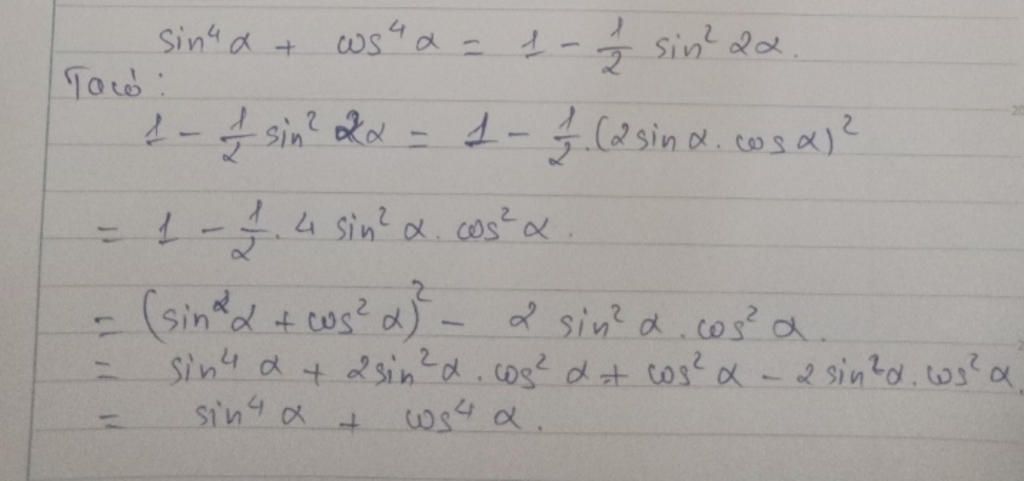 sin⁴α + cos⁴α = 1 - 1/2 sin² 2α.
Ta có:
1 - 1/2 sin² 2α = 1 - 1/2.(2sin α. cos α)²
= 1 - 1/2. 4 sin² α. cos² α.
= (sin²α + cos² α)² - 2 sin² α. cos² α.
= sin⁴ α + 2sin²α. cos² α + cos² α - 2sin²α. cos² α.
= sin⁴ α + cos⁴ α.